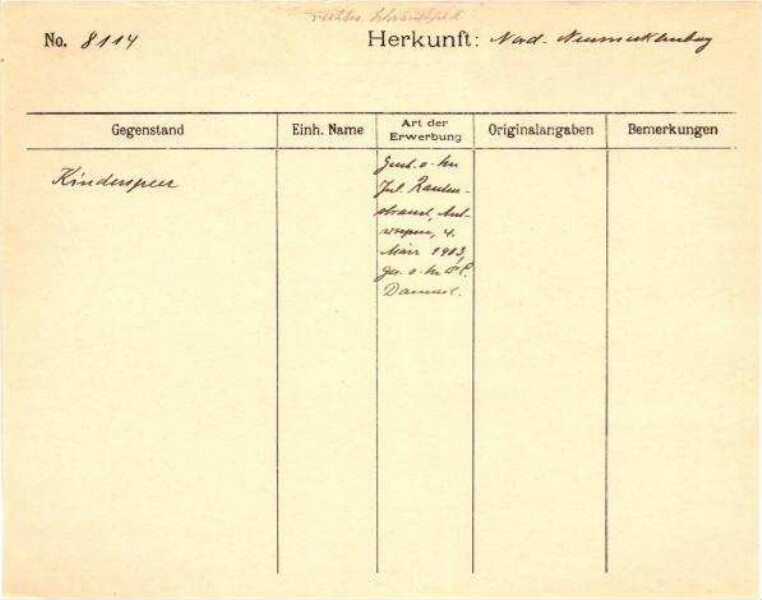 No. 8114
Herkunft: Nord-Neumecklenburg
Gegenstand
Einh. Name
Art der Erwerbung
Originalangaben
Bemerkungen
Kinderspeer
Gesch. v. Hn
Jul. Rauten-
strauch, Ant-
werpen, 4.
März 1903,
ges. v. Hn